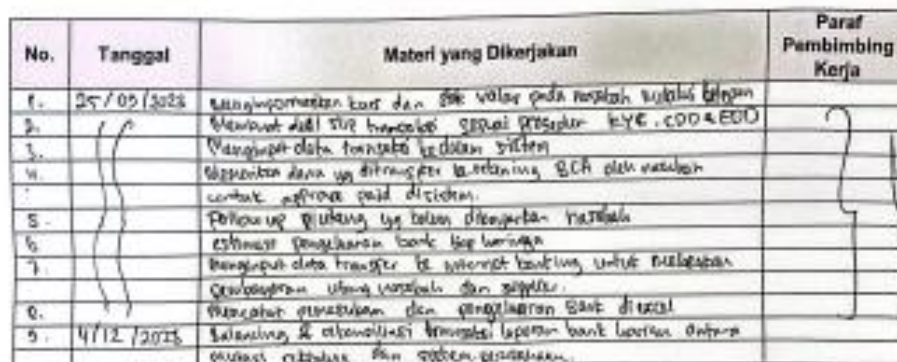 No. Tanggal Materi yang Dikerjakan Paraf Pembimbing Kerja
1. 25/09/2023 Menginformasikan kurs dan stok valas pada nasabah melalui telepon
2. Membuat deal slip transaksi sesuai prosedur KYC, CDD & EDD
3. Menginput data transaksi ke dalam sistem
4. dana yg ditransfer ke rekening BCA oleh nasabah
untuk approve paid disistem.
5. Follow up piutang yg belum dibayarkan nasabah
6. estimasi pengeluaran bank tiap harinya
7. Menginput data transfer ke internet banking untuk melakukan
pembayaran utang nasabah dan supplier.
8. Mencatat pemasukan dan pengeluaran Bank di excel
9. 4/12/2023 Balancing & rekonsiliasi transaksi laporan bank harian antara
mutasi rekening dan sistem perusahaan.